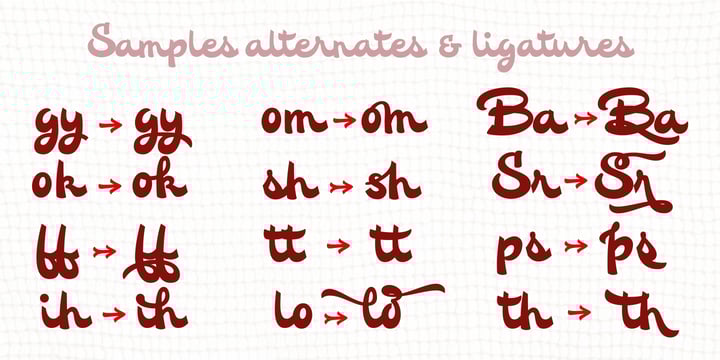 Samples alternates & ligatures
gy → gy om → om Ba → Ba
ok → ok sh → sh Sr → Sr
ff → ff tt → tt ps → ps
ih → ih lo → lo th → th